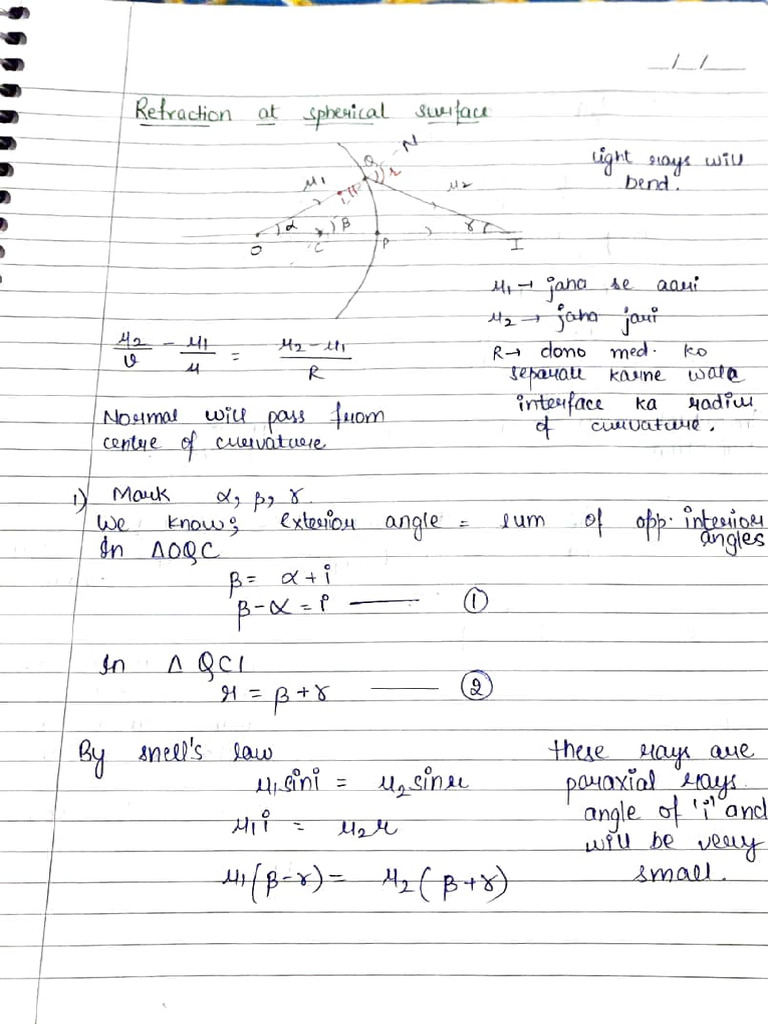 _/_/__
Refraction at spherical surface
light rays will
bend.
Q N
μ1 i r μ2
α β γ
O C P I
μ1 → jaha se aari
μ2 → jaha jari
μ2/v - μ1/u = μ2-μ1/R
R → dono med. ko
separate karne wala
interface ka radius
of curvature.
Normal will pass from
centre of curvature
1) Mark α, β, γ.
We know; exterior angle = sum of opp. interior
angles
In ΔOQC
β = α + i
β - α = i —— ①
In Δ QCI
r = β + γ —— ②
By snell's law
μ1 sin i = μ2 sin r
μ1 i = μ2 r
μ1(β-γ) = μ2(β+γ)
these rays are
paraxial rays.
angle of 'i' and
will be very
small.